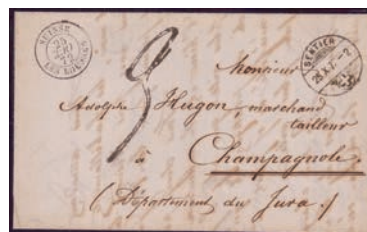 SUISSE
LES ROUSSES
SENTIER
Monsieur
Adolphe Hugon, marchand
tailleur
à
Champagnole.
(Département du Jura.)